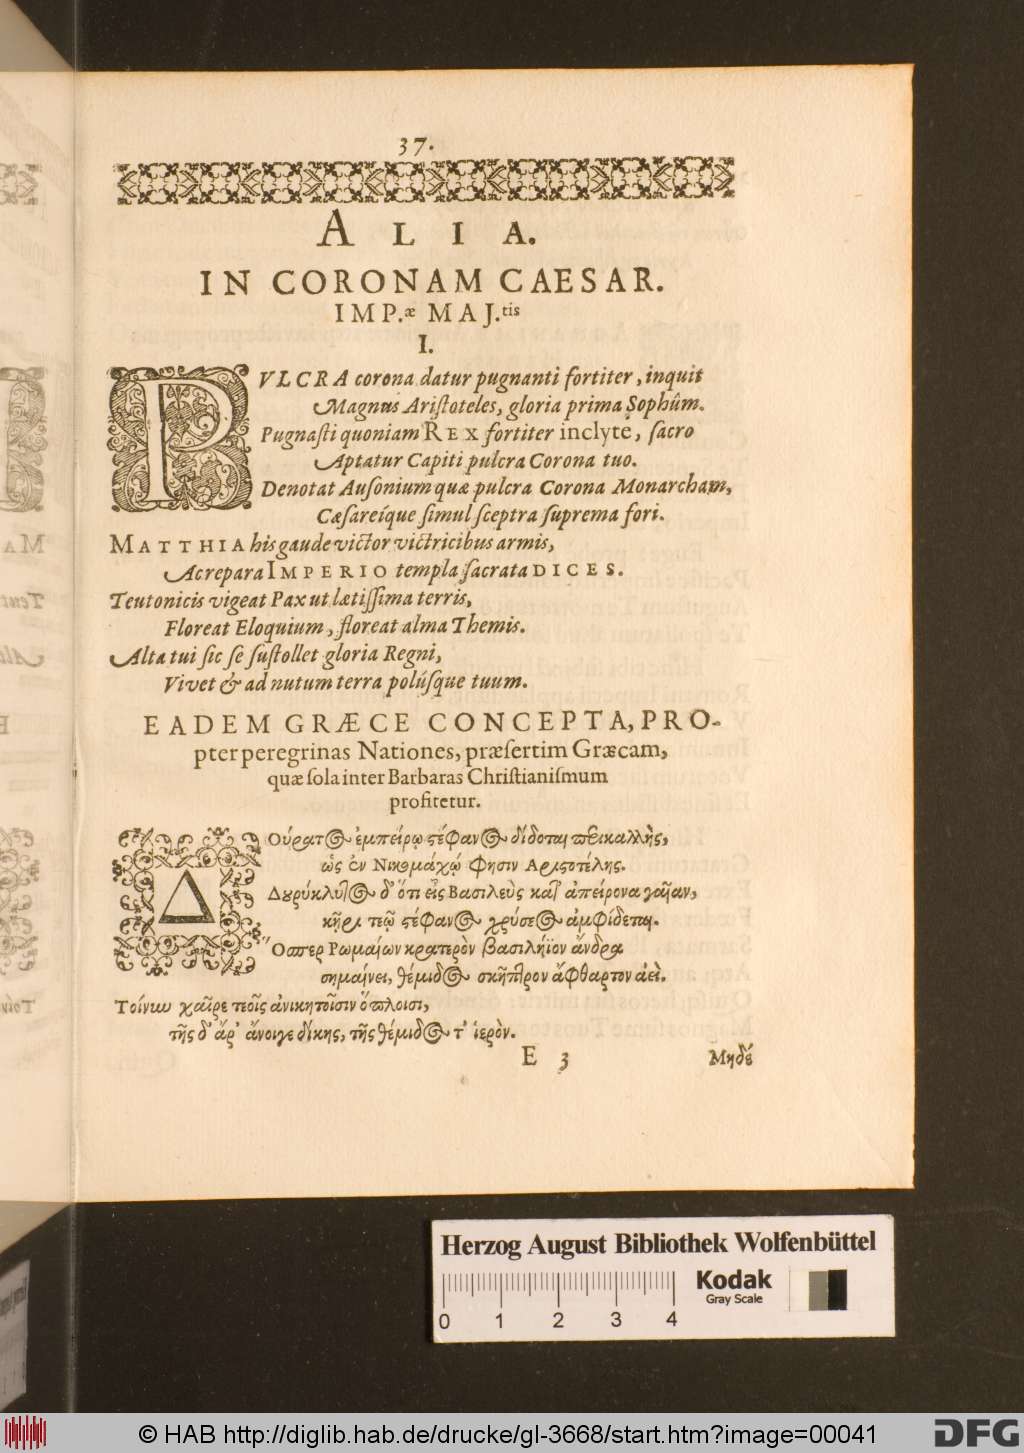 37.
ALIA.
IN CORONAM CAESAR.
IMP.æ MAJ.tis
I.
PVLCRA corona datur pugnanti fortiter, inquit
Magnus Aristoteles, gloria prima Sophûm.
Pugnasti quoniam REX fortiter inclyte, sacro
Aptatur Capiti pulcra Corona tuo.
Denotat Ausonium quæ pulcra Corona Monarcham,
Cæsareíque simul sceptra suprema fori.
MATTHIA his gaude victor victricibus armis,
Ac repara IMPERIO templa sacrata DICES.
Teutonicis vigeat Pax ut lætissima terris,
Floreat Eloquium, floreat alma Themis.
Alta tui sic se sustollet gloria Regni,
Vivet & ad nutum terra polúsque tuum.
EADEM GRÆCE CONCEPTA, PRO-
pter peregrinas Nationes, præsertim Græcam,
quæ sola inter Barbaras Christianismum
profitetur.
ΔΟύρατος ἐμπείρῳ στέφανος δίδοται περικαλλὴς,
ὡς ἐν Νικομάχῳ φησιν Αριστοτέλης.
Δουρύκλυτος δ' ὅτι εἶς Βασιλεὺς κατ' ἀπείρονα γαῖαν,
κῆρι τεῷ στέφανος χρύσεος ἀμφίδεται.
Ὅσπερ Ρωμαίων κρατερὸν βασιλήϊον ἄνδρα
σημαίνει, θέμιδος σκῆπτρον ἄφθαρτον ἀεί.
Τοίνυν χαῖρε τεοῖς ἀνικητοῖσιν ὅπλοισι,
τῆς δ' ἄρ' ἄνοιγε δίκης, τῆς θέμιδος τ' ἱερὸν.
E 3 Μηδέ
Herzog August Bibliothek Wolfenbüttel
Kodak
Gray Scale
0 1 2 3 4
© HAB http://diglib.hab.de/drucke/gl-3668/start.htm?image=00041
DFG